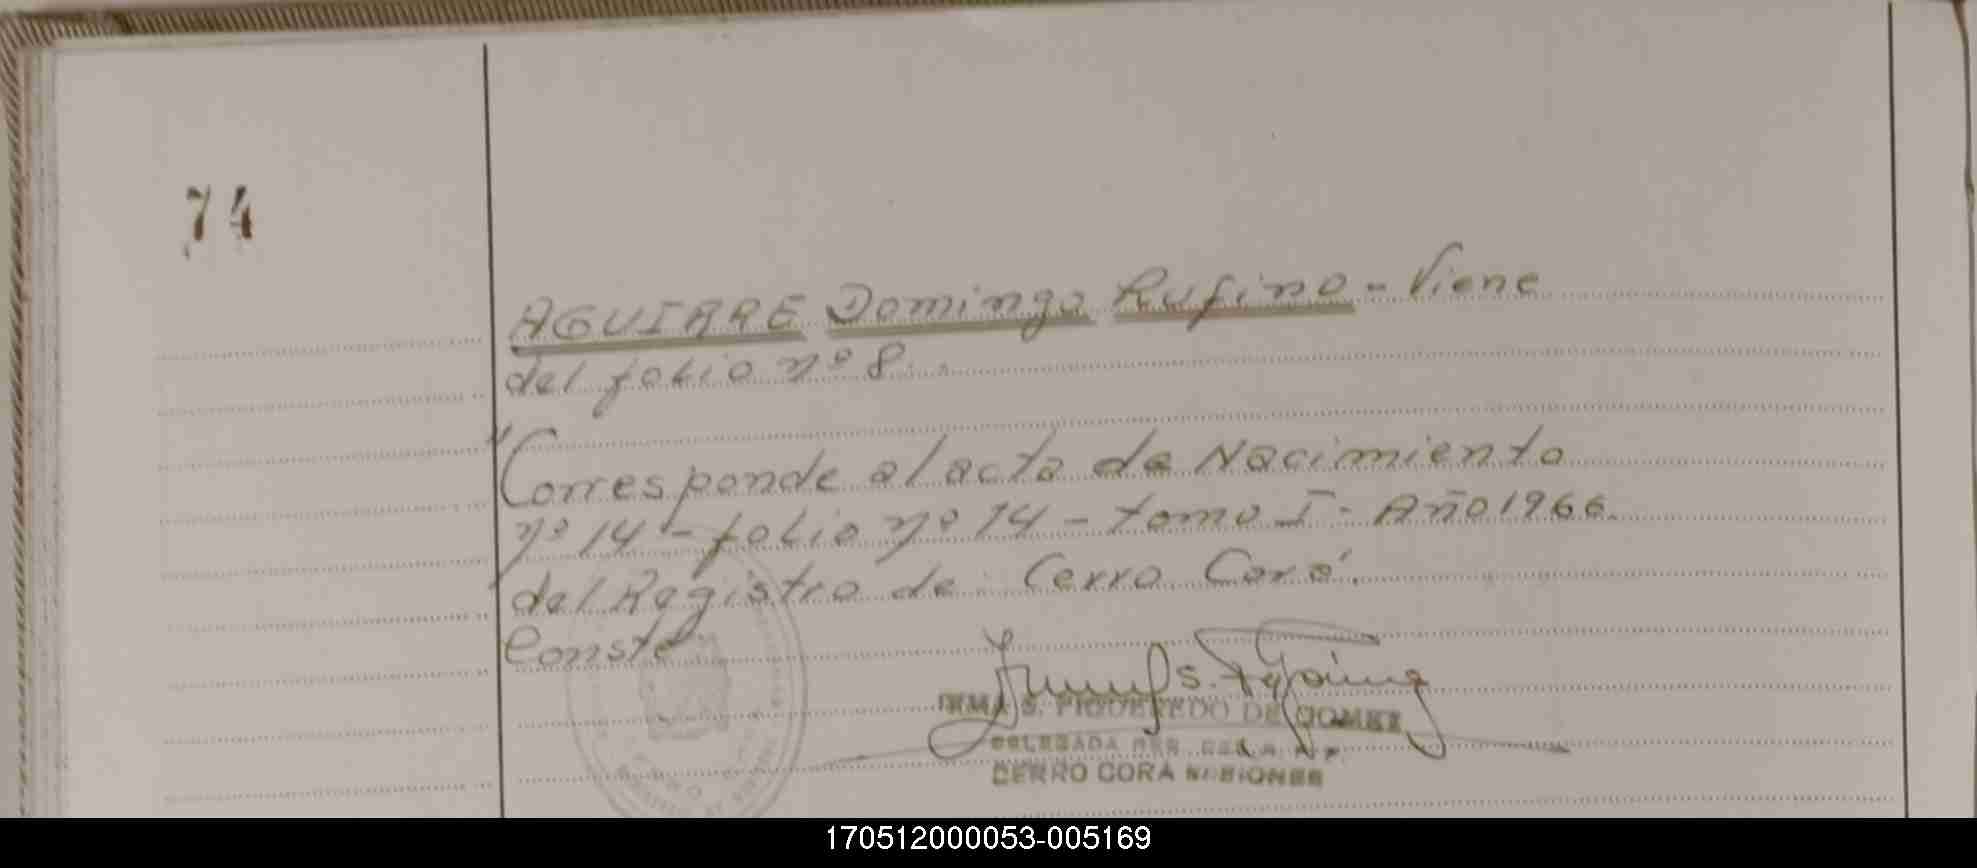 74
AGUIRRE Domingo Rufino - Viene
del folio nº 8.
"Corresponde al acta de Nacimiento
nº 14 - folio nº 14 - tomo I - Año 1966.
del Registro de Cerro Corá.
Conste
IRMA S. FIGUEREDO DE GOMEZ
DELEGADA
CERRO CORA MISIONES
170512000053-005169